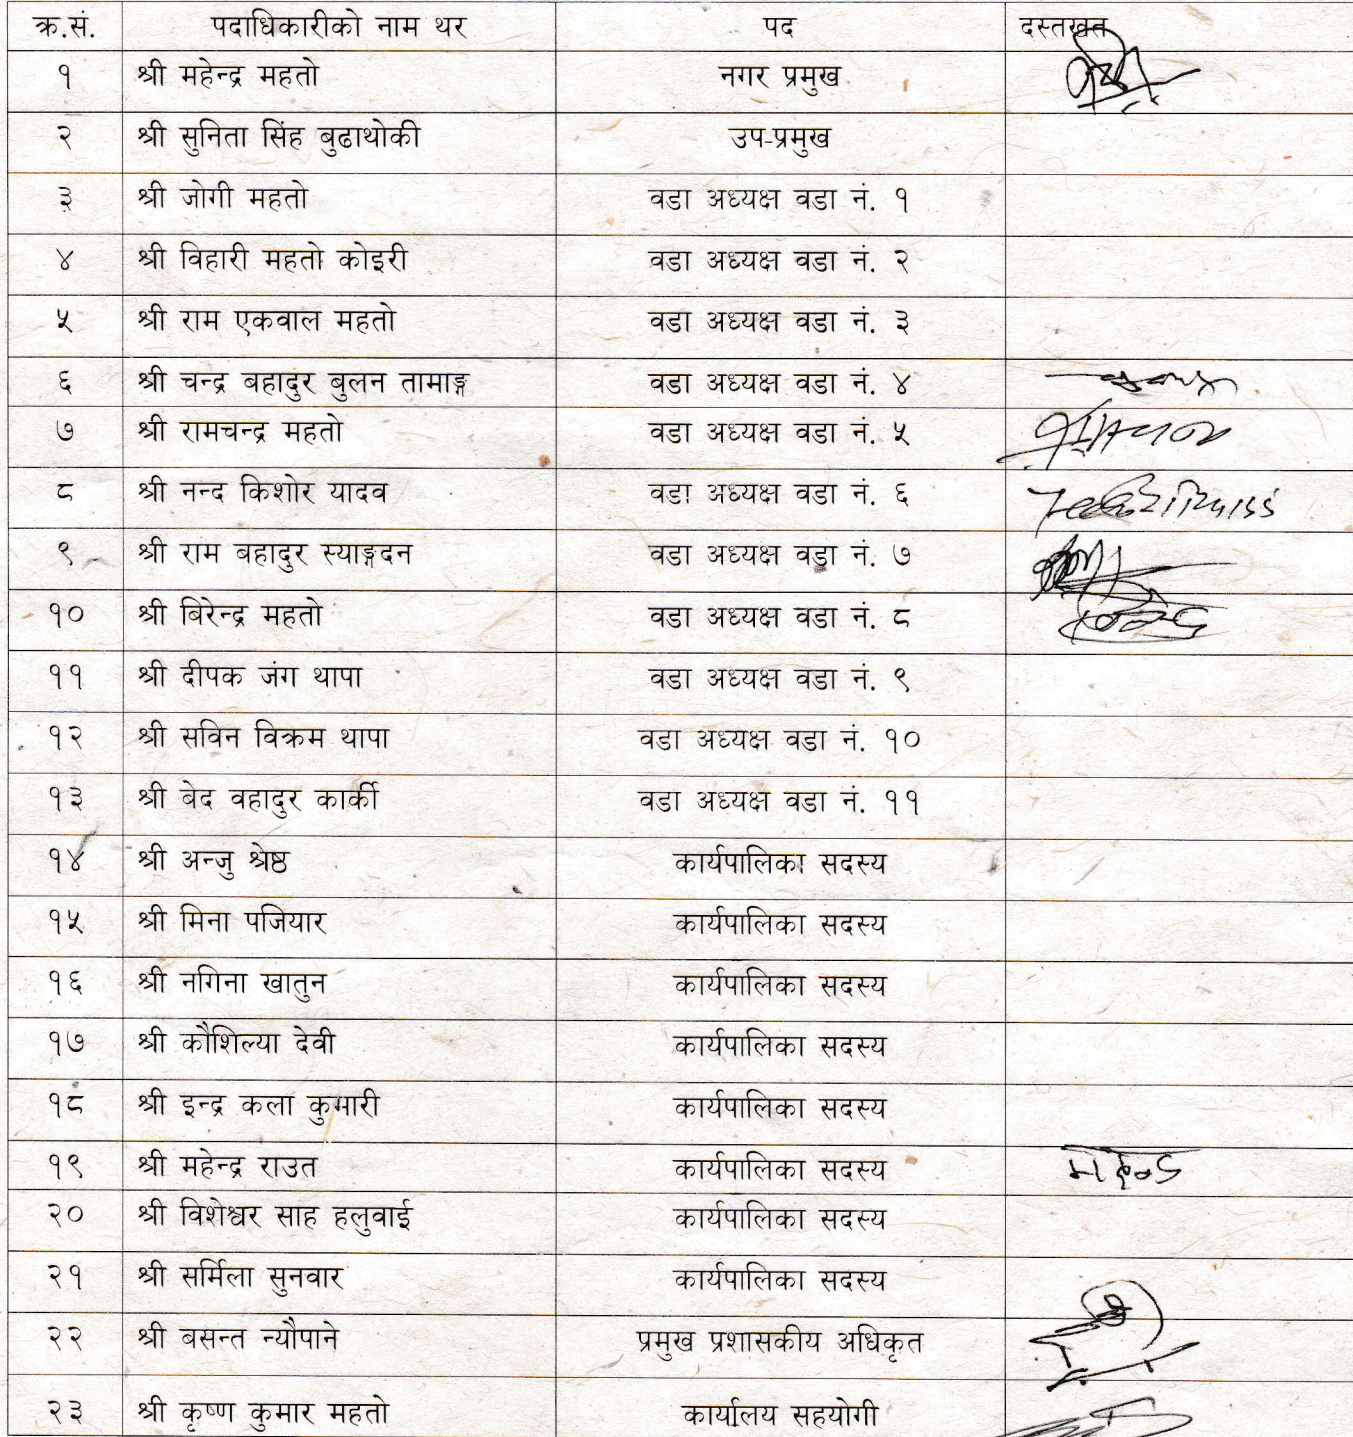 क्र.सं. पदाधिकारीको नाम थर पद दस्तखत
१ श्री महेन्द्र महतो नगर प्रमुख
२ श्री सुनिता सिंह बुढाथोकी उप-प्रमुख
३ श्री जोगी महतो वडा अध्यक्ष वडा नं. १
४ श्री विहारी महतो कोइरी वडा अध्यक्ष वडा नं. २
५ श्री राम एकवाल महतो वडा अध्यक्ष वडा नं. ३
६ श्री चन्द्र बहादुर बुलन तामाङ्ग वडा अध्यक्ष वडा नं. ४
७ श्री रामचन्द्र महतो वडा अध्यक्ष वडा नं. ५
८ श्री नन्द किशोर यादव वडा अध्यक्ष वडा नं. ६
९ श्री राम बहादुर स्याङ्गदन वडा अध्यक्ष वडा नं. ७
१० श्री बिरेन्द्र महतो वडा अध्यक्ष वडा नं. ८
११ श्री दीपक जंग थापा वडा अध्यक्ष वडा नं. ९
१२ श्री सविन विक्रम थापा वडा अध्यक्ष वडा नं. १०
१३ श्री बेद वहादुर कार्की वडा अध्यक्ष वडा नं. ११
१४ श्री अन्जु श्रेष्ठ कार्यपालिका सदस्य
१५ श्री मिना पजियार कार्यपालिका सदस्य
१६ श्री नगिना खातुन कार्यपालिका सदस्य
१७ श्री कौशिल्या देवी कार्यपालिका सदस्य
१८ श्री इन्द्र कला कुमारी कार्यपालिका सदस्य
१९ श्री महेन्द्र राउत कार्यपालिका सदस्य
२० श्री विशेश्वर साह हलुवाई कार्यपालिका सदस्य
२१ श्री सर्मिला सुनवार कार्यपालिका सदस्य
२२ श्री बसन्त न्यौपाने प्रमुख प्रशासकीय अधिकृत
२३ श्री कृष्ण कुमार महतो कार्यालय सहयोगी